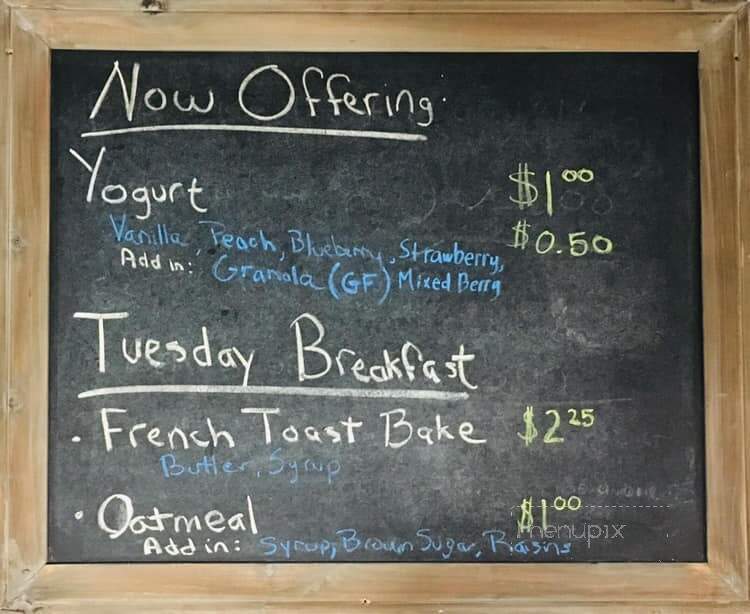 Now Offering
Yogurt $1.00
Vanilla, Peach, Blueberry, Strawberry, Mixed Berry
Add in: Granola (GF) $0.50
Tuesday Breakfast
• French Toast Bake $2.25
Butter, Syrup
• Oatmeal $1.00
menupix
Add in: Syrup, Brown Sugar, Raisins